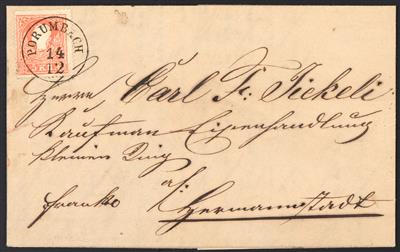 PORUMBACH
14
2
Herrn Carl F. Jickeli
Kaufman Eisenhandlung
kleinen Ring
a/:
franko Hermannstadt